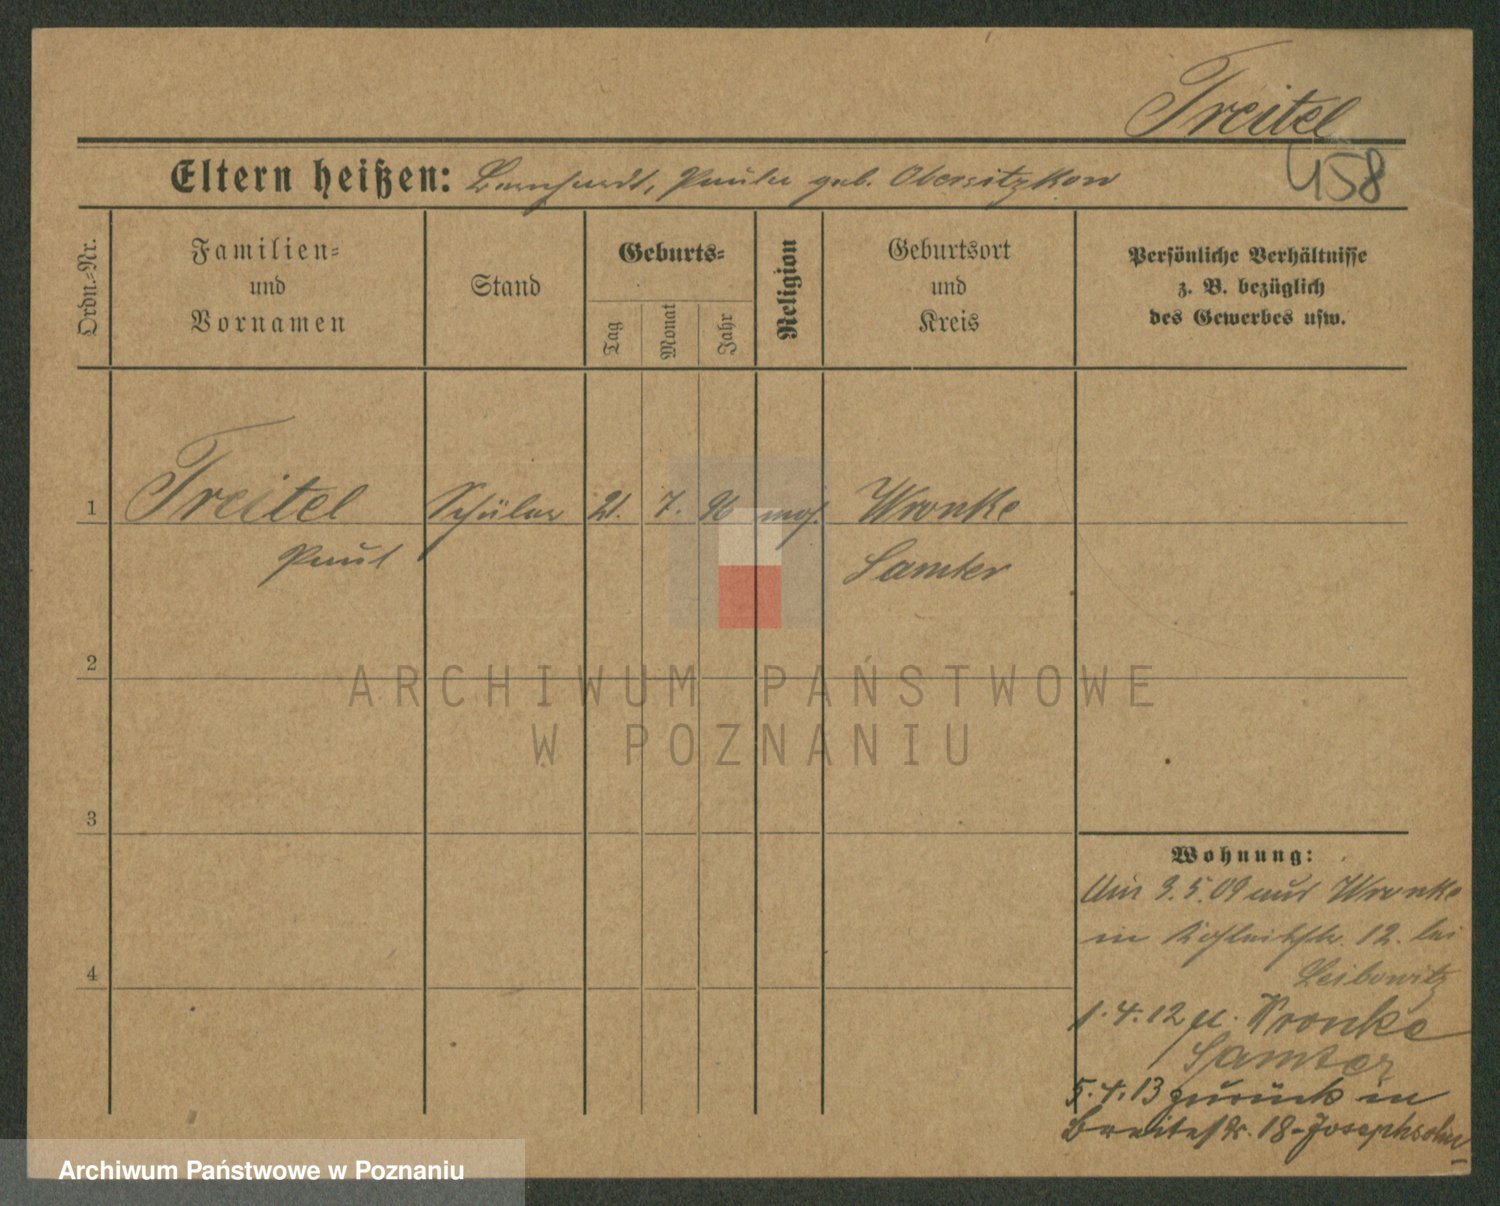 Treitel
458
Eltern heißen: Bernhardt, Paula geb. Obersitzkow
Ordn.-Nr.
Familien-
und
Vornamen
Stand
Geburts-
Tag
Monat
Jahr
Religion
Geburtsort
und
Kreis
Persönliche Verhältnisse
z. B. bezüglich
des Gewerbes usw.
1 Treitel Schüler 21. 7. 96 mos. Wronke
Paul Samter
2
ARCHIWUM PAŃSTWOWE
W POZNANIU
3
4
Wohnung:
3.5.09 aus Wronke
in 12. bei
Leibowitz
1.4.12 n. Wronke
Samter
5.4.13 zurück in
Breitestr. 18 - Josephsohn
Archiwum Państwowe w Poznaniu